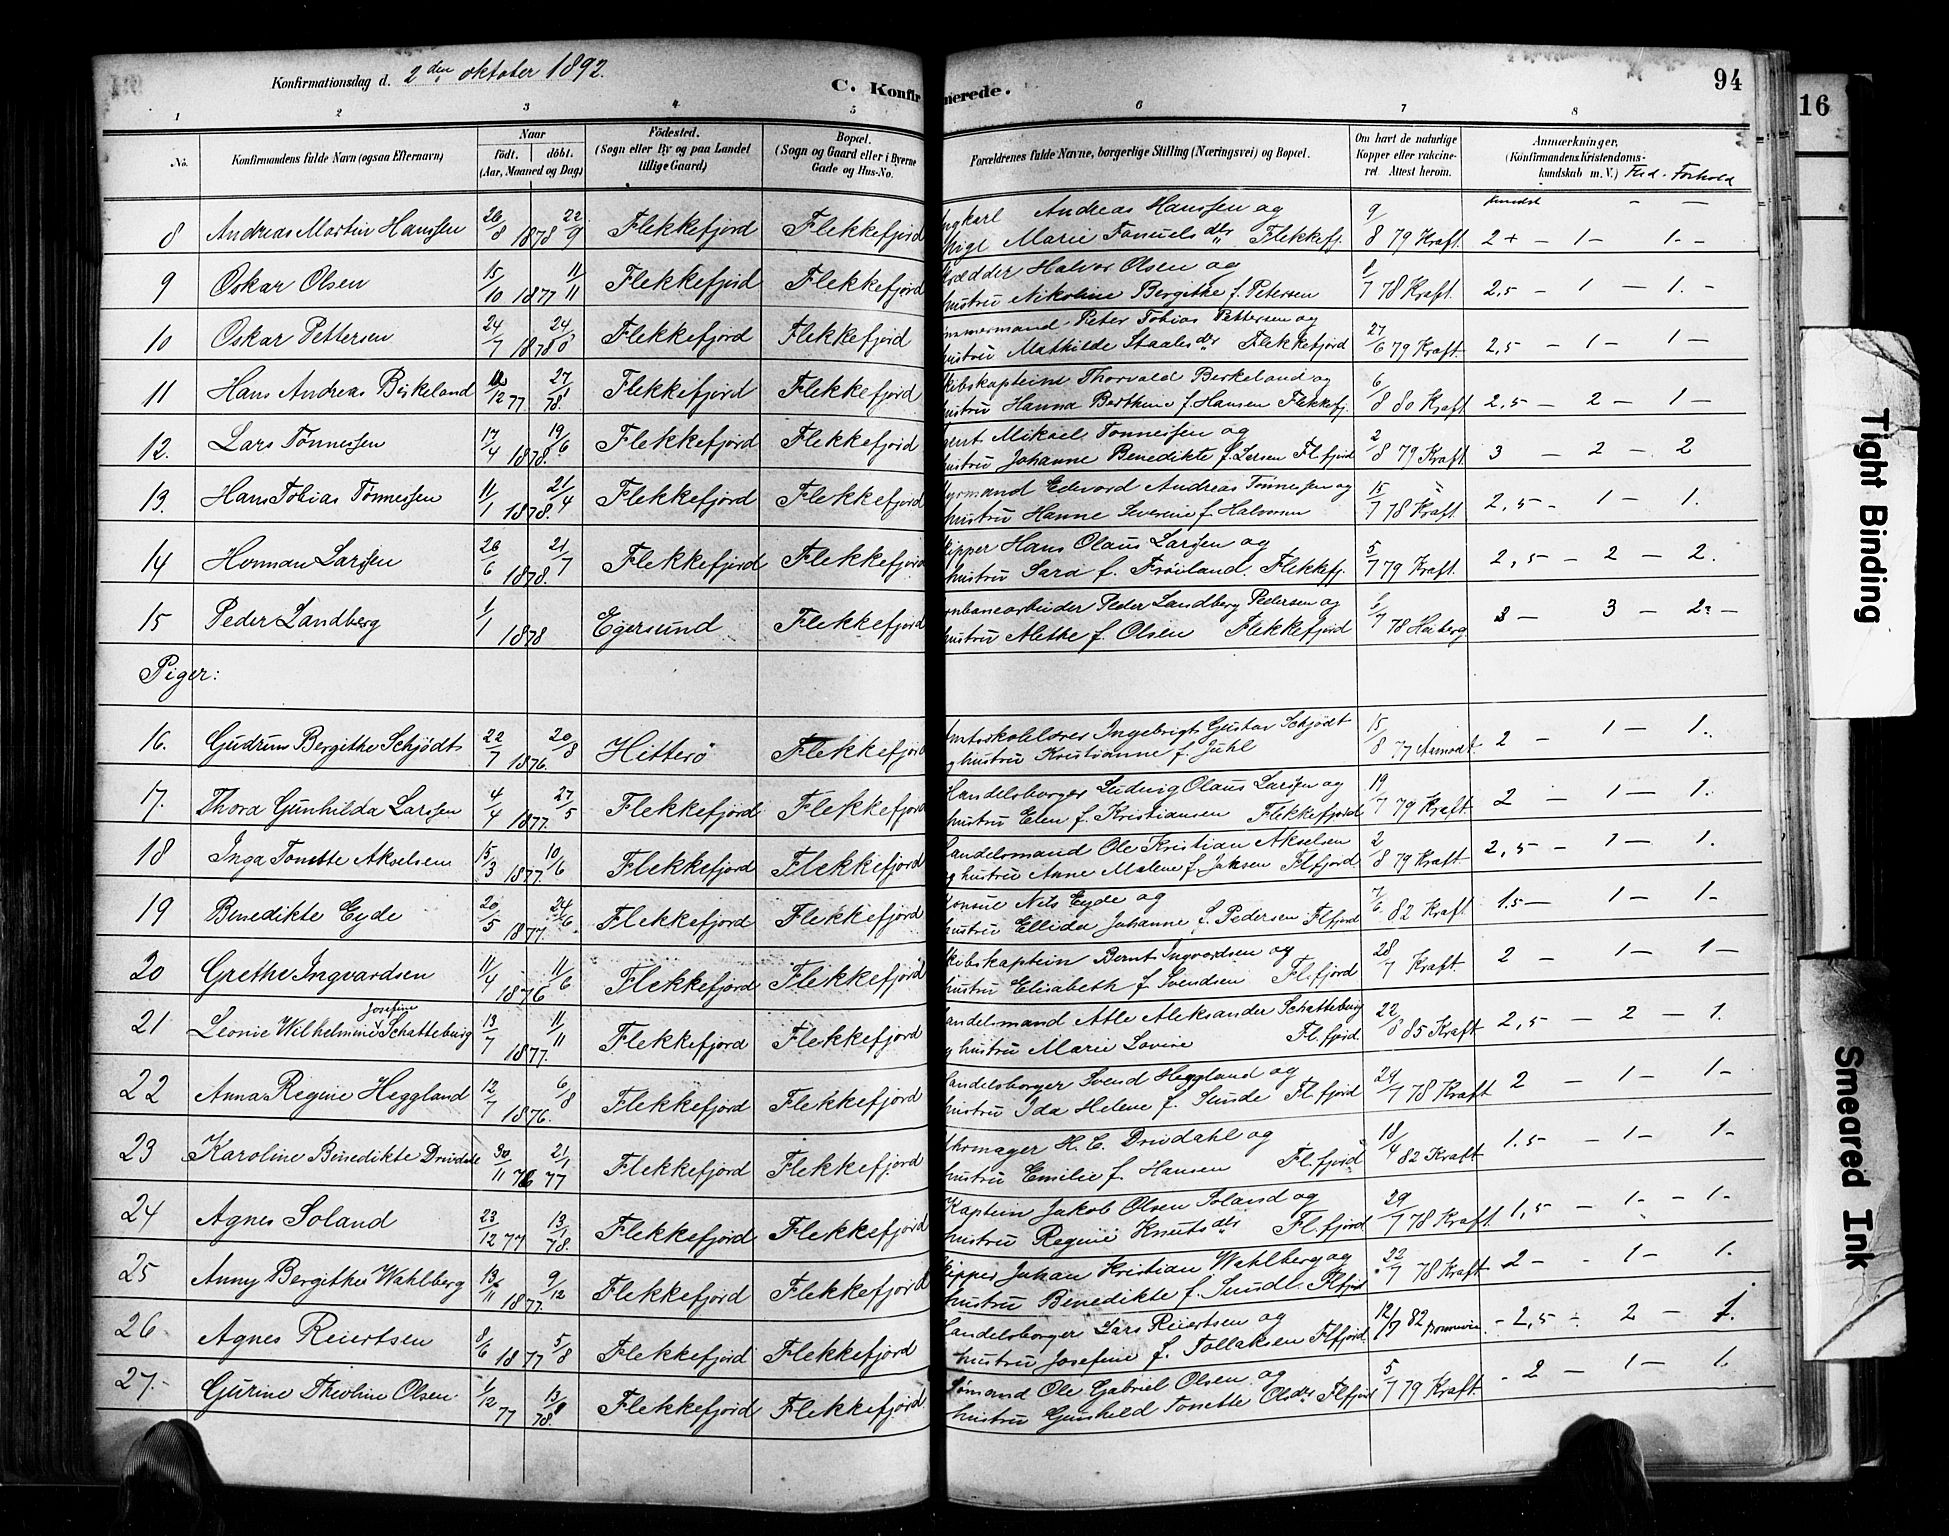 Konfirmationsdag d. 2den oktober 1892.
C. Konfirmerede.
94
16
1 2 3 4 5 6 7 8
No.
Konfirmandens fulde Navn (ogsaa Efternavn)
Naar
födt. döbt.
(Aar, Maaned og Dag)
Födested.
(Sogn eller By og paa Landet
tillige Gaard)
Bopæl.
(Sogn og Gaard eller i Byerne
Gade og Hus-No.
Forældrenes fulde Navne, borgerlige Stilling (Næringsvei) og Bopæl.
Om havt de naturlige
Kopper eller vakcine-
ret. Attest herom.
Anmærkninger,
(Konfirmandens Kristendoms-
kundskab m. V.) Flid - Forhold
8 Andreas Martin Hanssen 26/8 1878 22/9 Flekkefjord Flekkefjord
Andreas Hanssen og
Marie Tanuels dtr Flekkefj. 9/8 79 Kraft. 2+ - 1 - 1. -
9 Oskar Olsen 15/10 1877 11/11 Flekkefjord Flekkefjord
Halvor Olsen og
hustru Nikoline Bergithe f. Petersen 1/7 78 Kraft. 2,5 - 1 - 1. -
10 Oskar Pettersen 24/7 1878 24/8 Flekkefjord Flekkefjord
Peter Tobias Pettersen og
hustru Mathilde Staalesdtr Flekkefjord 27/6 79 Kraft. 2,5 - 1 - 1 -
11 Hans Andreas Birkeland 12 77 27/1 78. Flekkefjord Flekkefjord
Skibskaptein Thorvald Berkeland og
hustru Hanna Berthine f. Hansen Flekkefj. 6/8 80 Kraft 2,5 - 2 - 1 -
12. Lars Tönnessen 17/4 1878. 19/6 Flekkefjord Flekkefjord
Agent Mikael Tonnessen og
hustru Johanne Benedikte f. Larsen Fl.fjord 2/8 79 Kraft. 3 - 2 - 2
13. Hans Tobias Tønnessen 11/1 1878. 21/4 Flekkefjord Flekkefjord
Styrmand Edevard Andreas Tonnessen og
hustru Hanne Severine f. Halvorsen 15/7 78 Kraft. 2,5 - 1 - 1.
14 Herman Larssen 26/6 1878. 21/7 Flekkefjord Flekkefjord
Skipper Hans Olaus Larssen og
hustru Sara f. Fröiland. Flekkefj. 5/7 79 Kraft. 2,5 - 2 - 2.
15 Peder Landberg 1/1 1878 Egersund Flekkefjord
Jernbanearbeider Peder Landberg Pedersen og
hustru Alethe f. Olsen Flekkefjord 1/7 78 Hoiberg 3 - 3 - 2 -
Piger:
16. Gudrun Bergithe Schjödt 22/7 1876. 20/8 Hitterö Flekkefjord
Amtsskolelærer Ingebrigt Gustav Schjödt
og hustru Kristianne f. Juhl 15/8 77 2 - 1 - 1.
17. Thora Gunhilda Larssen 4/4 1877. 27/5 Flekkefjord Flekkefjord
Handelsborger Ludvig Olaus Larssen og
hustru Elen f. Kristiansen Flekkefjord 19/7 79 Kraft. 2 - 1 - 1.
18 Inga Tomette Akselsen 15/3 1877. 10/6 Flekkefjord Flekkefjord
Handelsmand Ole Kristian Akselsen
og hustru Anne Malene f. Jaksen Flfjord 2/8 79 Kraft. 2,5 - 1 - 1.
19 Benedikte Eyde 20/5 1877. 24/6. Flekkefjord Flekkefjord
Konsul Nils Eyde og
hustru Ellida Johanne f. Pedersen Flfjord 7/6 82 Kraft. 1.5 - 1 - 1 -
20 Grethe Ingvardsen 11/4 1876 11/6 Flekkefjord Flekkefjord
Skibskaptein Bernt Ingvardsen og
hustru Elisabeth f. Svendsen Fl.fjord 28/7 Kraft. 2 - 1 - 1 -
21 Leonie Wilhelmine Josefine Schatteburg 13/7 1877. 11/11 Flekkefjord Flekkefjord
Handelsmand Atle Aleksander Schatteburg
og hustru Marie Lovise Fl.fjord. 22/8 85 Kraft 2,5 - 2 - 1.
22 Anna Regine Heggland 12/7 1876. 6/8 Flekkefjord Flekkefjord
Handelsborger Svend Heggland og
hustru Ida Helene f. Sunde Fl.fjord 24/7 78 Kraft 2 - 1 - 1 -
23 Karoline Benedikte Drivdahl 30/11 76 21/1 77 Flekkefjord Flekkefjord
H. C. Drivdahl og
hustru Emilie f. Hansen Fl.fjord 18/4 82 Kraft 1.5 - 1 - 1 -
24 Agnes Soland 23/12 77 13/1 78. Flekkefjord Flekkefjord
Kaptein Jakob Olsen Soland og
hustru Regine Knutsdtr Fl.fjord 29/7 78 Kraft 1,5 - 1 - 1 -
25 Anny Bergithe Wahlberg 13/11 1877. 9/12 Flekkefjord Flekkefjord
Skipper Johan Kristian Wahlberg og
hustru Benedikte f. Flfjord 22/7 78 Kraft 2 - 1 - 1.
26 Agnes Reiertsen 8/6 1877 5/8 Flekkefjord Flekkefjord
Handelsborger Lars Reiertsen og
hustru Josefine f. Tollaksen Flfjord. 12/7 82 2,5 - 2 - 1.
27. Gurine Theoline Olsen 1/12 77 13/1 78 Flekkefjord Flekkefjord.
Sömand Ole Gabriel Olsen og
hustru Gunhild Tonette Olsdtr Flfjord 5/7 79 Kraft. 2 - 1 - 1.
Tight Binding
Smeared Ink